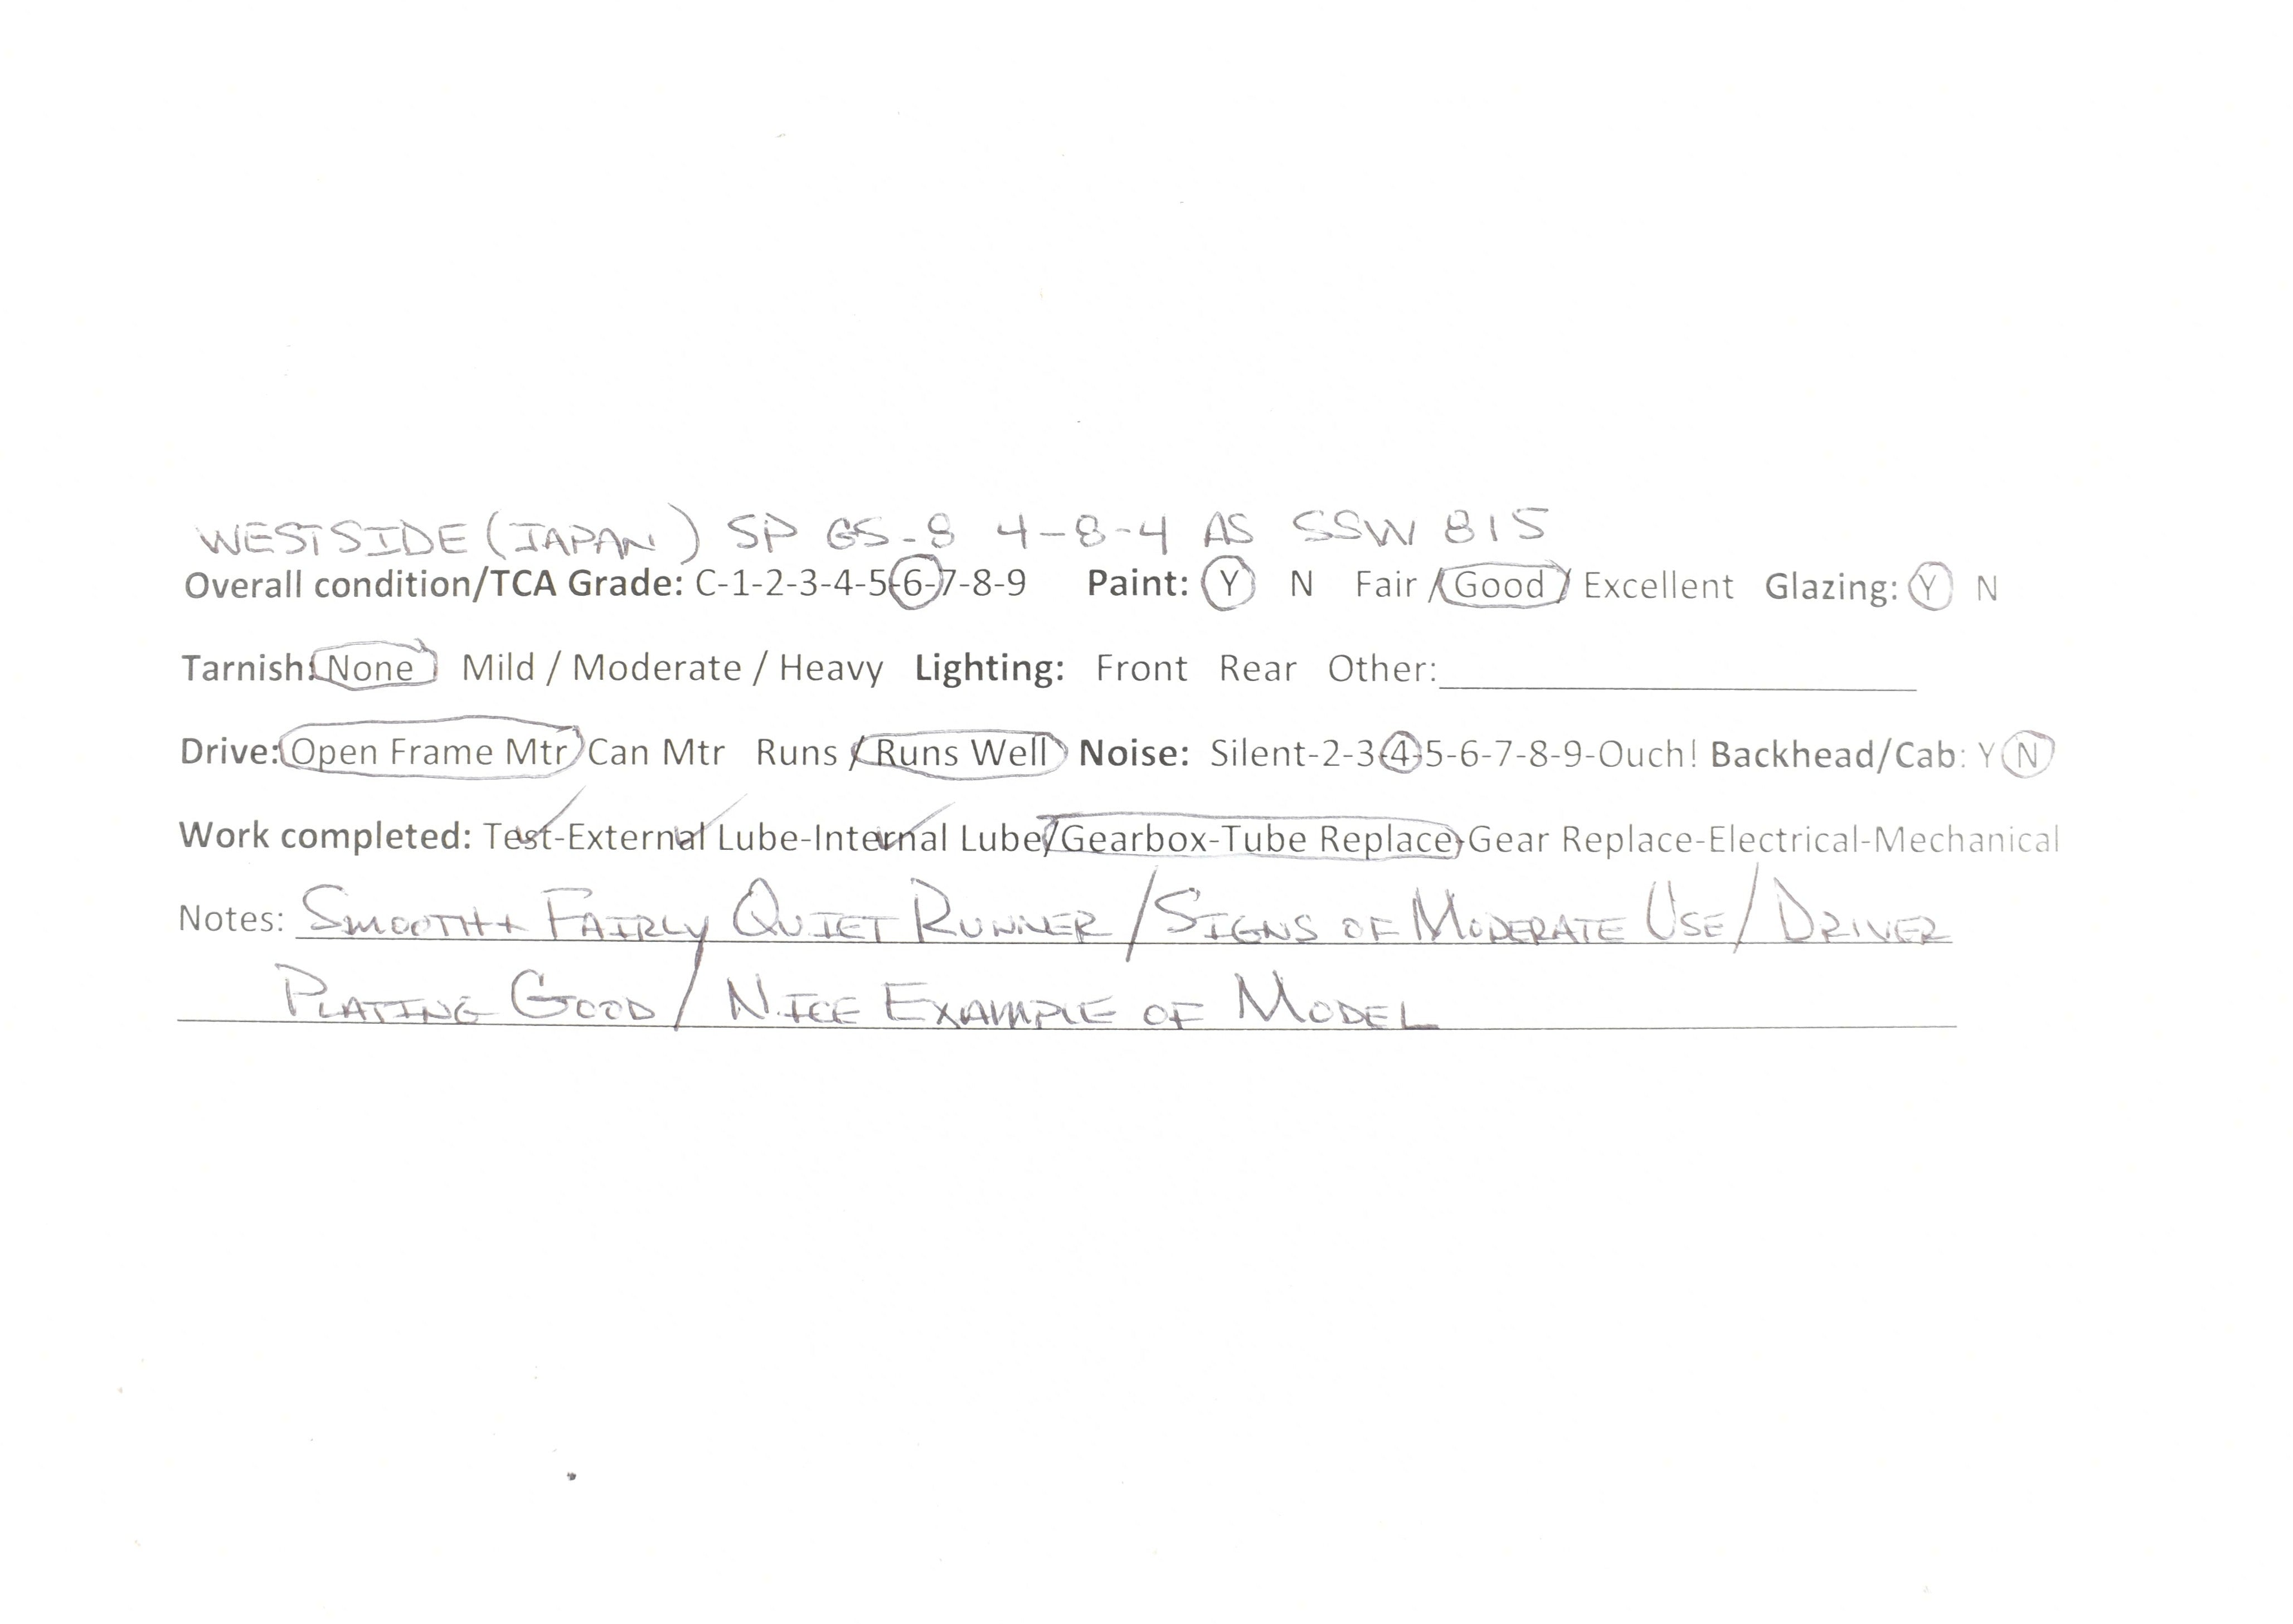 WESTSIDE (JAPAN) SP GS-8 4-8-4 AS SSW 815
Overall condition/TCA Grade: C-1-2-3-4-5-6-7-8-9 Paint: Y N Fair / Good / Excellent Glazing: Y N
Tarnish: None Mild / Moderate / Heavy Lighting: Front Rear Other:
Drive: Open Frame Mtr Can Mtr Runs / Runs Well Noise: Silent-2-3-4-5-6-7-8-9-Ouch! Backhead/Cab: Y N
Work completed: Test-External Lube-Internal Lube/Gearbox-Tube Replace-Gear Replace-Electrical-Mechanical
Notes: SMOOTH + FAIRLY QUIET RUNNER / SIGNS OF MODERATE USE / DRIVER
PLATING GOOD / NICE EXAMPLE OF MODEL